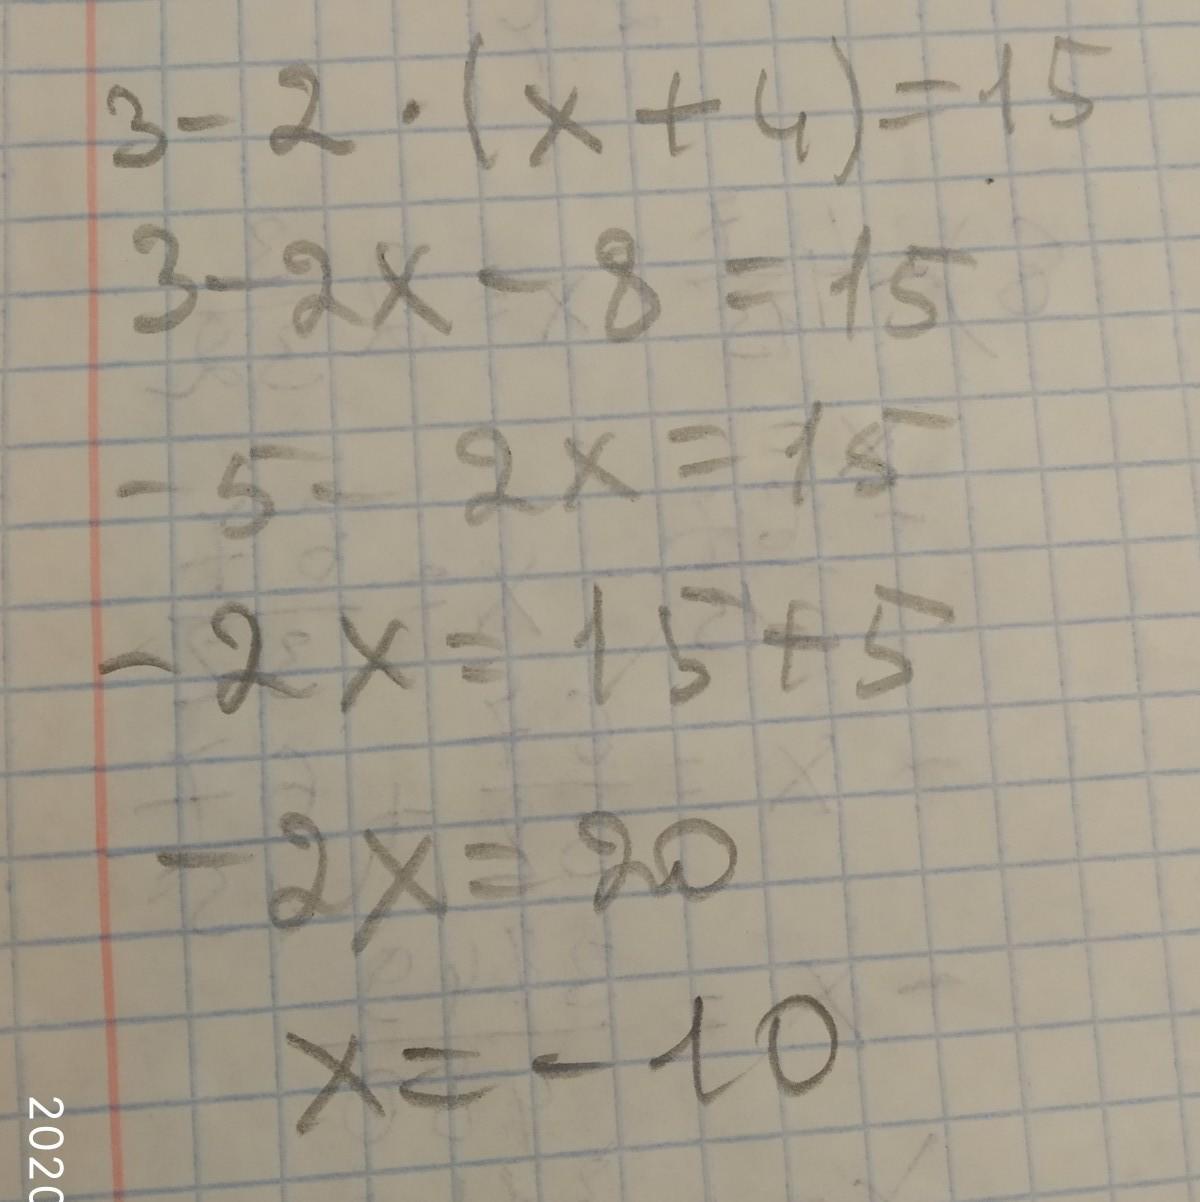 3 - 2 · (x + 4) = 15
3 - 2x - 8 = 15
- 5 - 2x = 15
- 2x = 15 + 5
- 2x = 20
x = - 10
2020